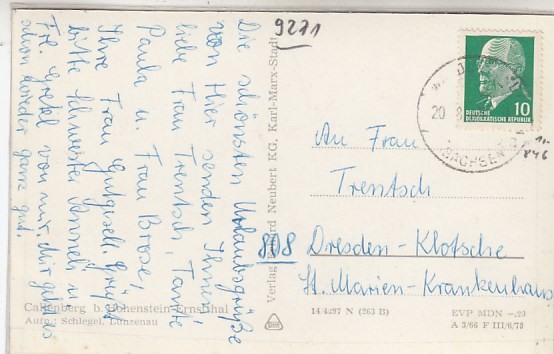 Die schönsten Urlaubsgrüße
von Hier senden Ihnen,
liebe Frau Trentsch, Tante
Paula u. Frau Brose,
Ihre Frau
bitte Schwester Anneli u.
Frl. Gretel von mir. Mir geht es
schon wieder ganz gut.
9271
Verlag Erhard Neubert KG, Karl-Marx-Stadt
DEUTSCHE
DEMOKRATISCHE REPUBLIK
10
20
SACHSEN
An Frau
Trentsch
808 Dresden-Klotsche
St. Marien-Krankenhaus
Callenberg b. Hohenstein-Ernstthal
Aufn.: Schlegel, Lunzenau
14/4297 N (263 B)
EVP MDN -,20
A 3/66 F III/6/73